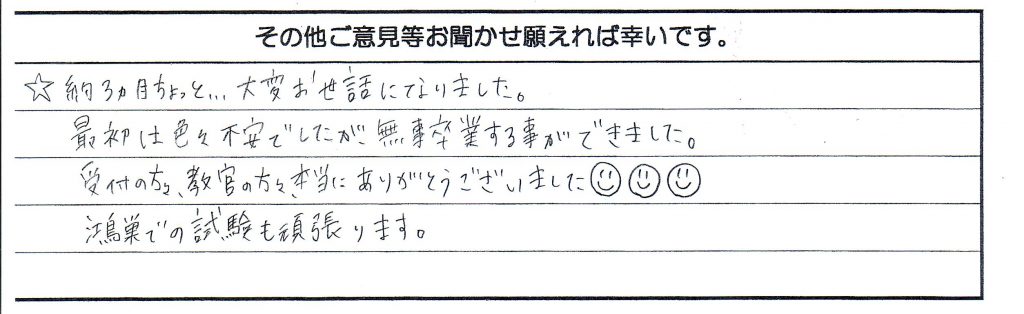 その他ご意見等お聞かせ願えれば幸いです。
☆約3ヵ月ちょっと...大変お世話になりました。
最初は色々不安でしたが、無事卒業する事ができました。
受付の方々、教官の方々、本当にありがとうございました☺☺☺
鴻巣での試験も頑張ります。